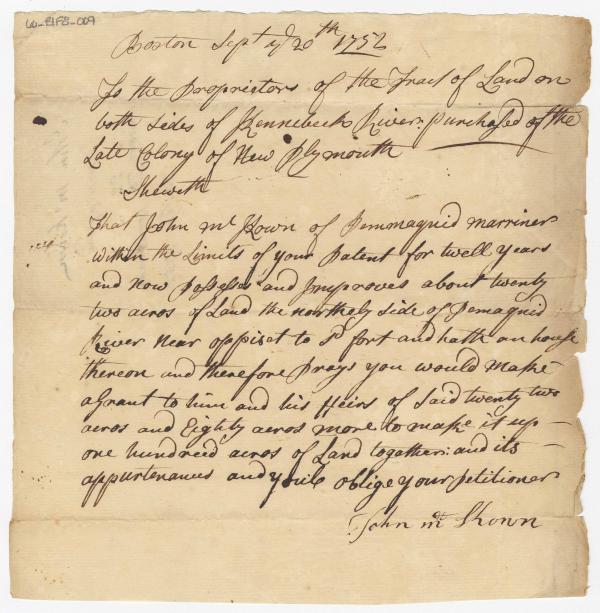 Boston Sept ye 20th 1752
To the Proprietors of the Tract of Land on
both sides of Kennebeck River purchased of the
Late Colony of New Plymouth
Sheweth
That John Mc Kown of Pemmaquid marriner
within the Limits of your Patent for twell years
and now possesses and Improves about twenty
two acros of Land the northely side of Pemaquid
River near oppiset to Sd fort and hath an house
thereon and therefore prays you would make
a Grant to him and his Heirs of Said twenty two
acros and Eighty acros more to make it up
one hundred acros of Land together and its
appurtenances and you'l oblige your petitioner
John Mc Kown